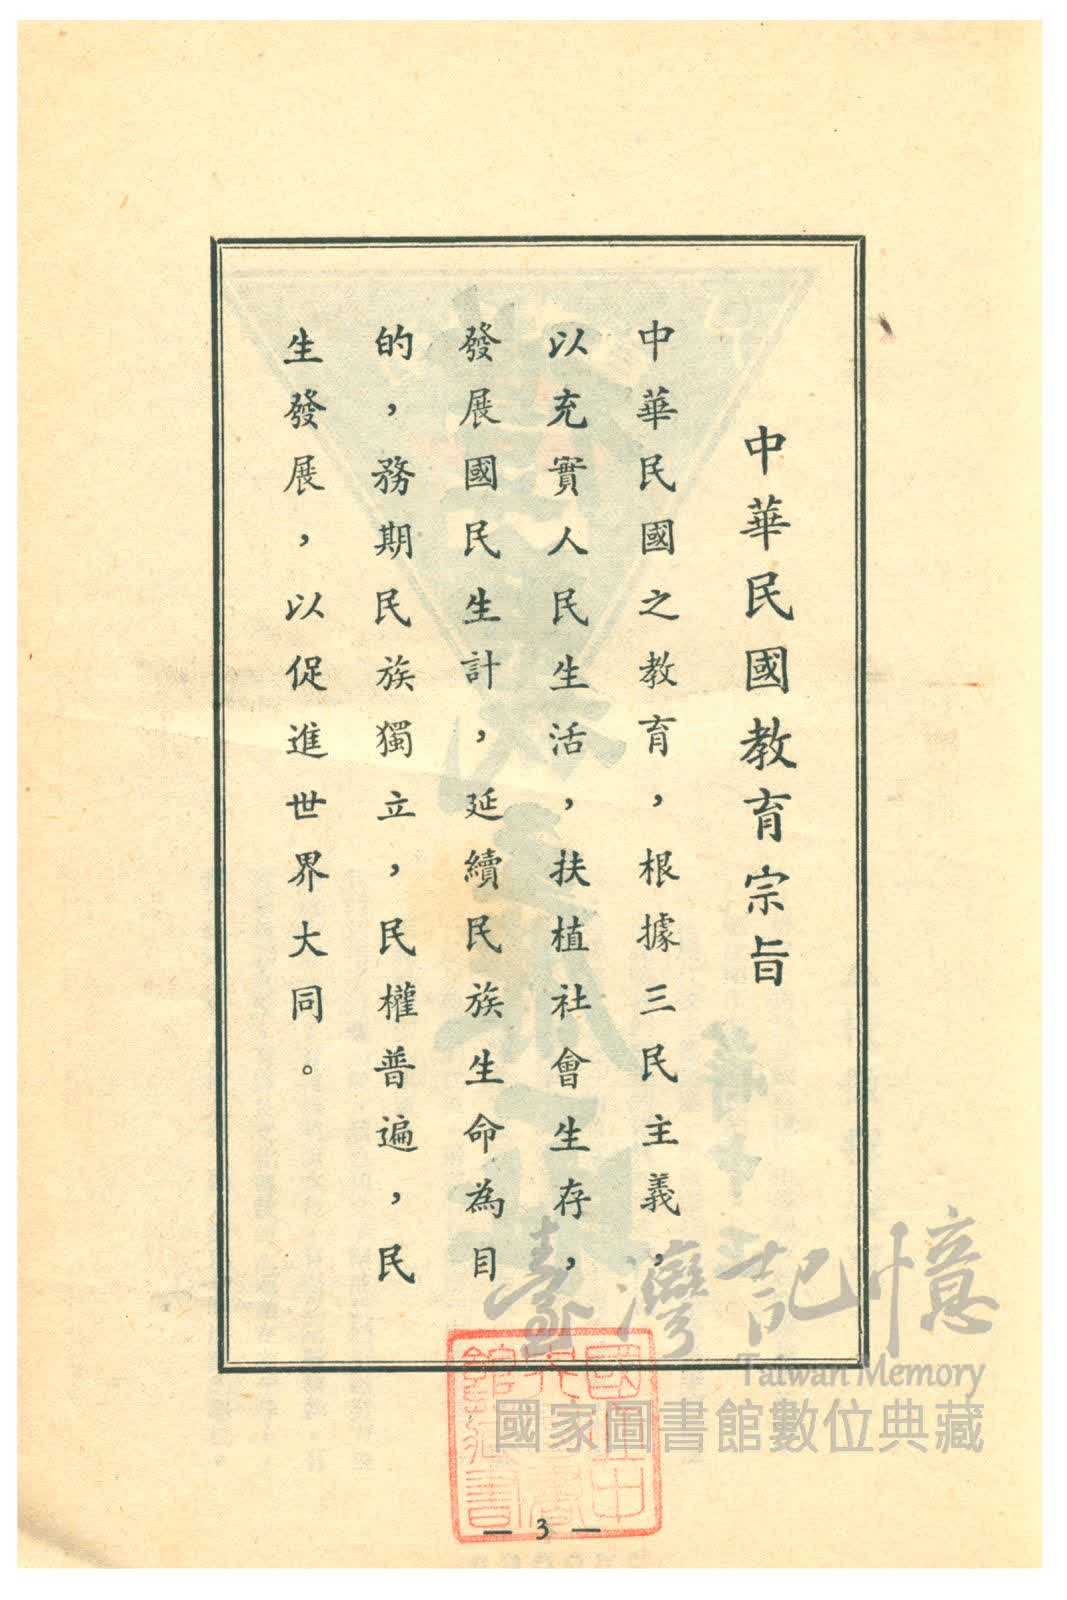 中華民國教育宗旨
中華民國之教育，根據三民主義，
以充實人民生活，扶植社會生存，
發展國民生計，延續民族生命為目
的，務期民族獨立，民權普遍，民
生發展，以促進世界大同。
臺灣記憶
Taiwan Memory
國家圖書館數位典藏
國立中
央圖書
館藏書
— 3 —